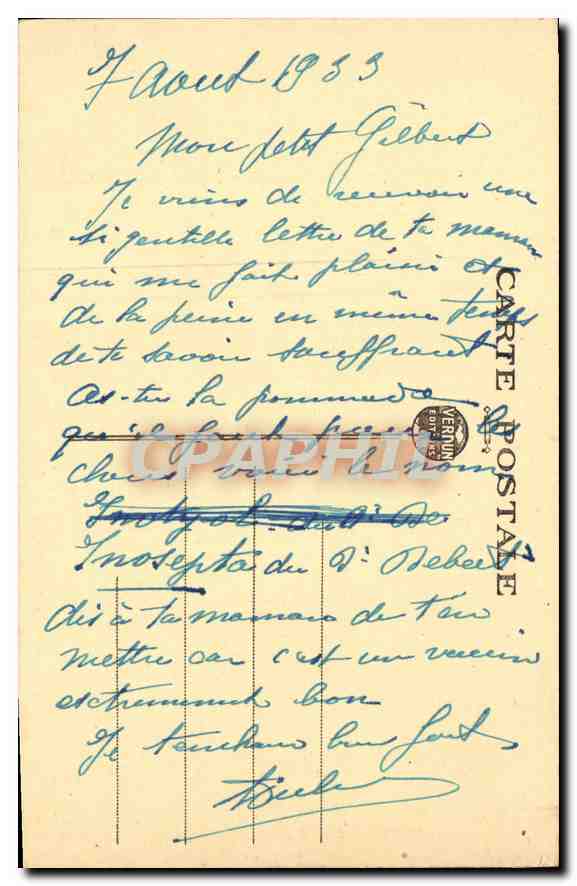 7 Aout 1933
Mon petit Gilbert
Je viens de recevoir une
si gentille lettre de ta maman
qui me fait plaisir et
de la peine en même temps
de te savoir souffrant
as-tu la pommade
qu'il faut pour les
clous voici le nom
Inotyol du Dr De
Inosepta du Dr Debeat
dis à ta maman de t'en
mettre car c'est un vaccin
extrement bon
Je t'embrasse bien fort
CARTE POSTALE
VERDUN
EDIT
CPAPHIL